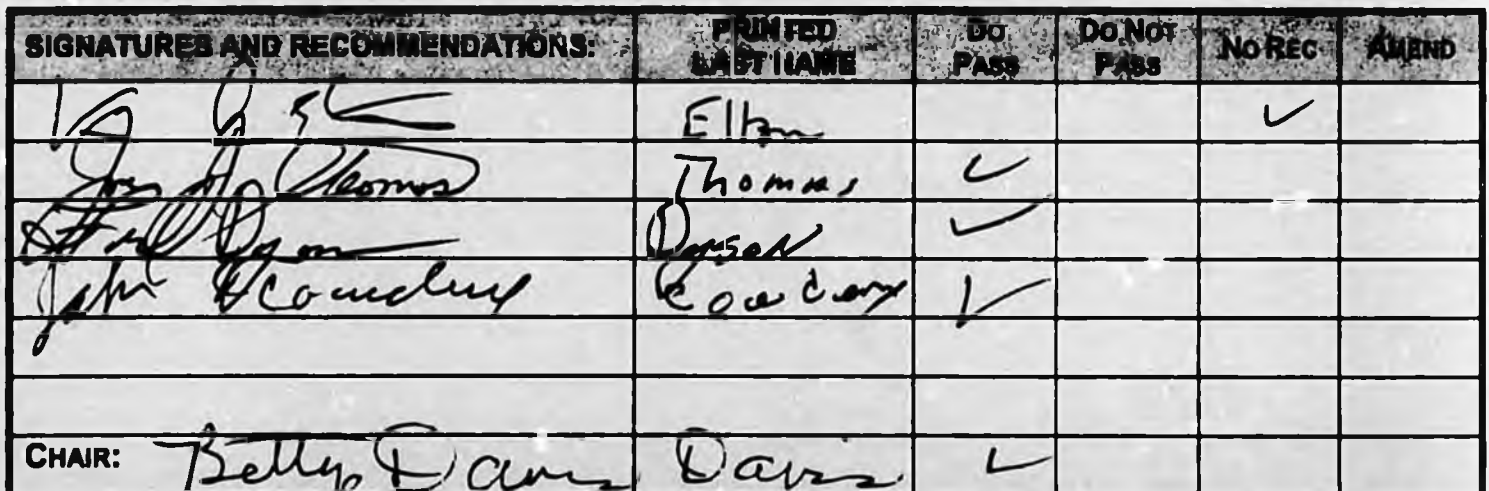 SIGNATURES AND RECOMMENDATIONS: PRINTED LAST NAME DO PASS DO NOT PASS NO REC AMEND
Elton ✓
Thomas Thomas ✓
Dyson ✓
John Cowdery Cowdery ✓
CHAIR: Betty Davis Davis ✓